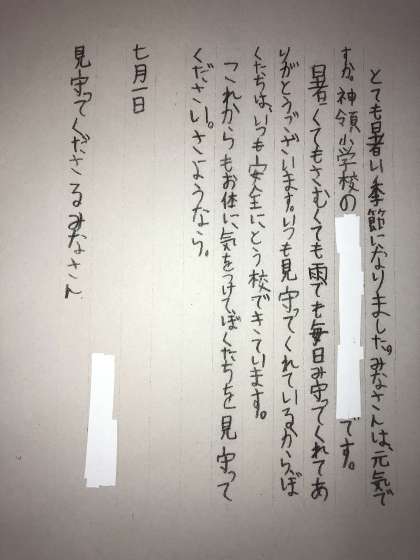 とても暑い季節になりました。みなさんは、元気で
すか。神領小学校の
です。
暑くてもさむくても雨でも毎日み守ってくれてあ
りがとうございます。いつも見守ってくれているからぼ
くたちは、いつも安全にとう校できています。
これからもお体に気をつけてぼくたちを見守って
ください。さようなら。
七月一日
見守ってくださるみなさん